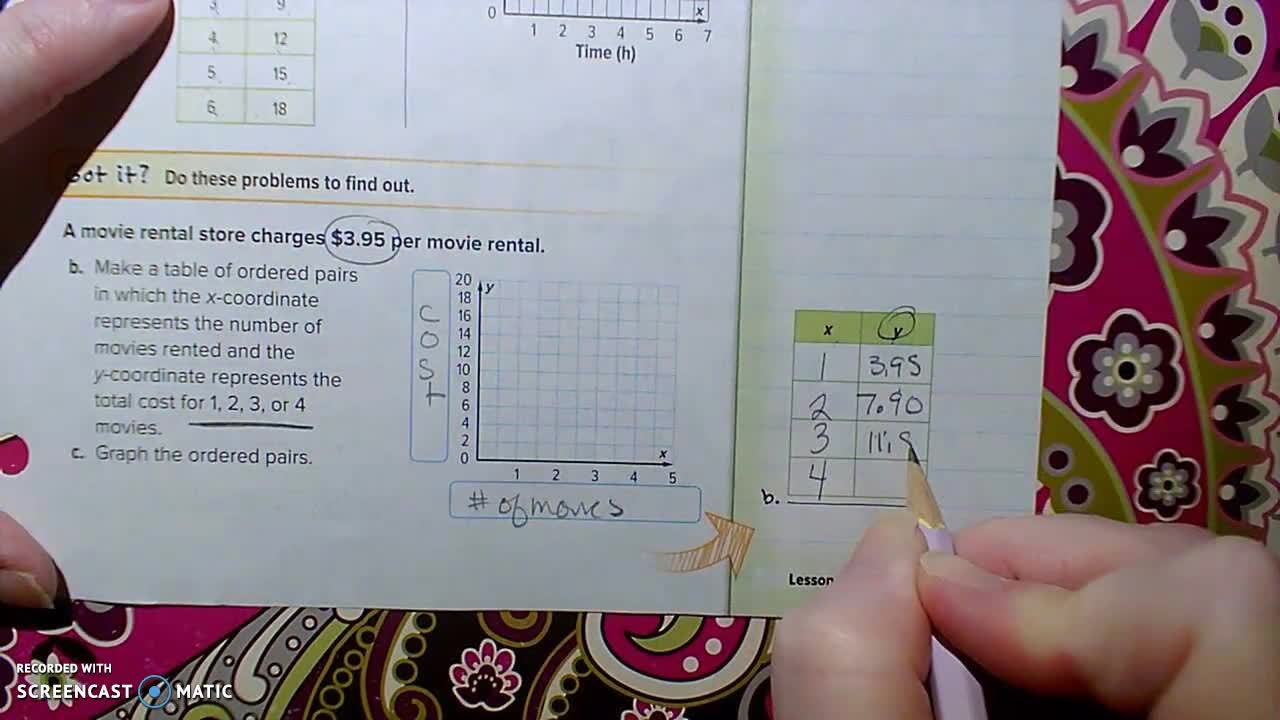 3 9
4 12
5 15
6 18
0
x
1 2 3 4 5 6 7
Time (h)
Got it? Do these problems to find out.
A movie rental store charges $3.95 per movie rental.
b. Make a table of ordered pairs
in which the x-coordinate
represents the number of
movies rented and the
y-coordinate represents the
total cost for 1, 2, 3, or 4
movies.
c. Graph the ordered pairs.
COST
20
18
16
14
12
10
8
6
4
2
0
y
x
1 2 3 4 5
# of movies
x y
1 3.95
2 7.90
3 11.8
4
b.
Lesson
RECORDED WITH
SCREENCAST MATIC